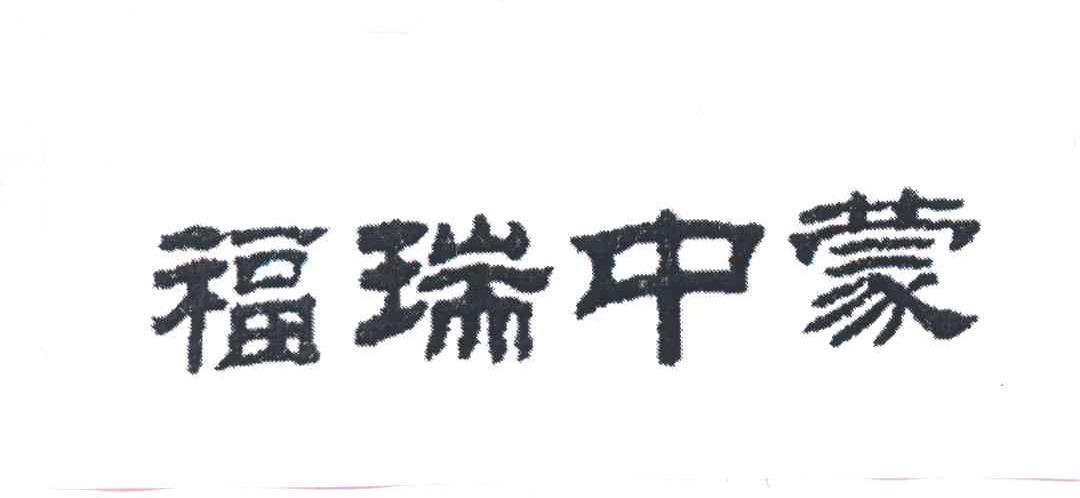 福瑞中蒙